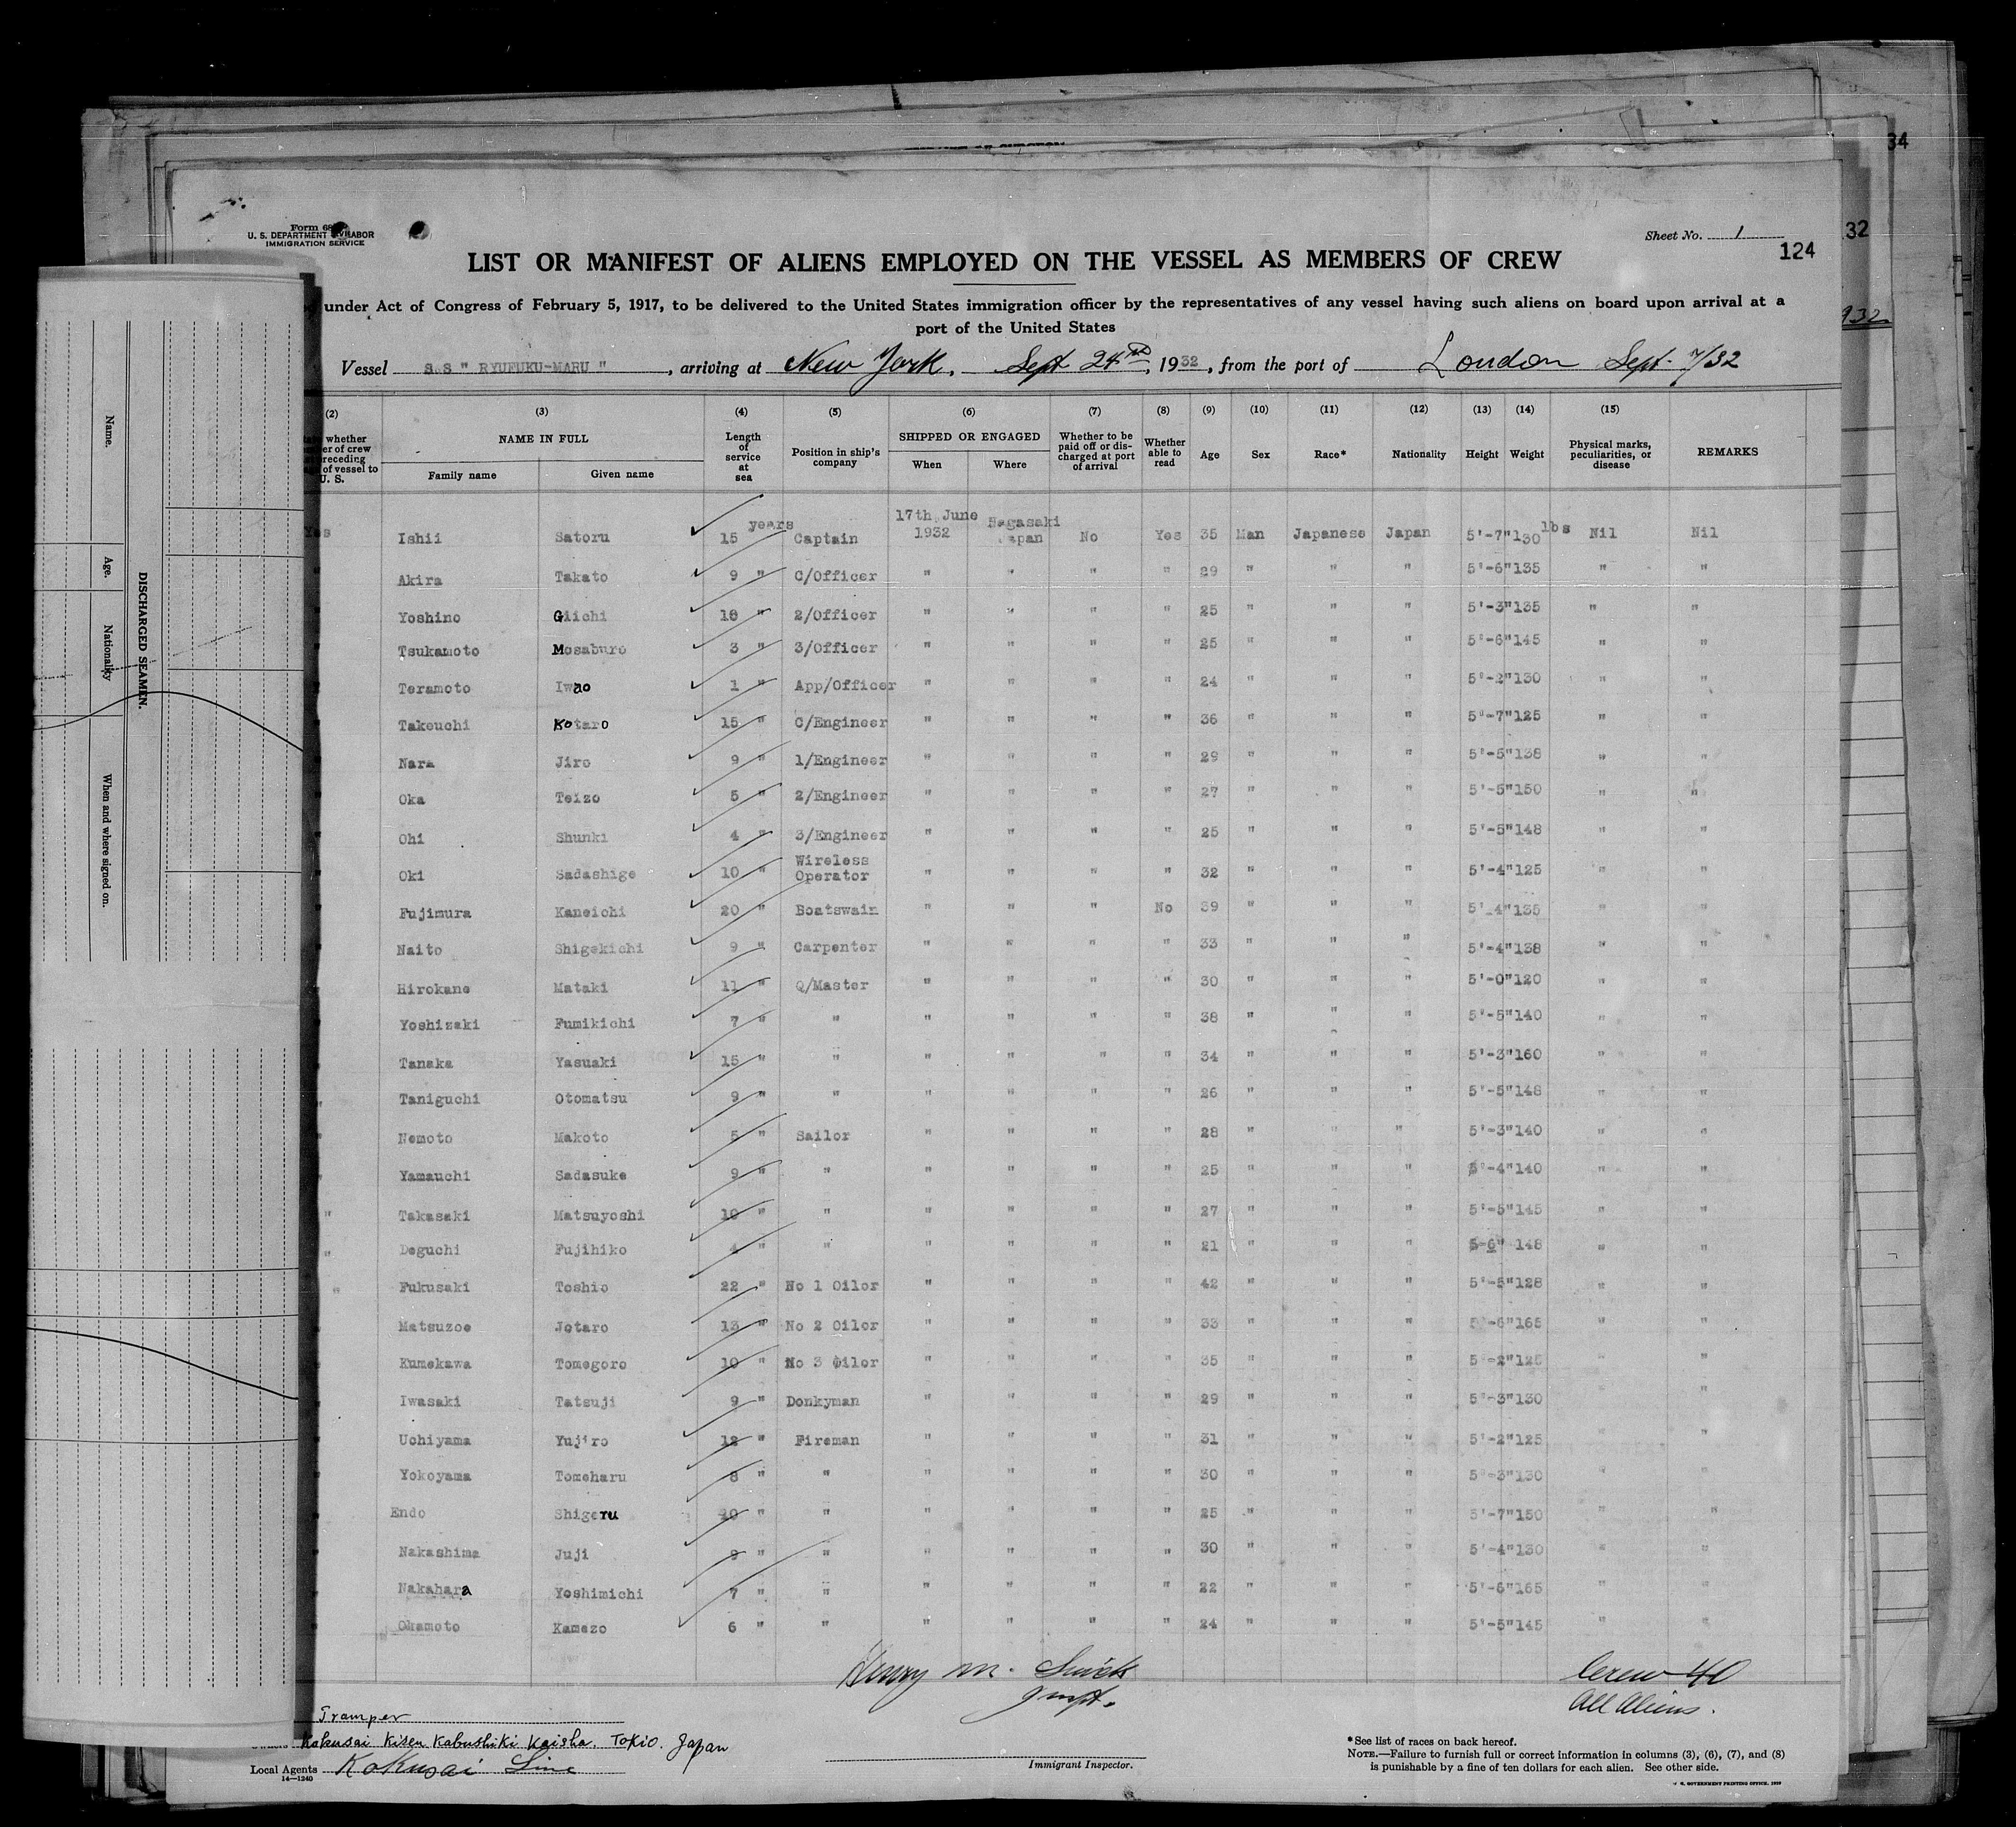 34
32
932
Form 68
U. S. DEPARTMENT LABOR
IMMIGRATION SERVICE
Sheet No. 1
124
LIST OR MANIFEST OF ALIENS EMPLOYED ON THE VESSEL AS MEMBERS OF CREW
under Act of Congress of February 5, 1917, to be delivered to the United States immigration officer by the representatives of any vessel having such aliens on board upon arrival at a
port of the United States
Vessel S.S " RYUFUKU-MARU ", arriving at New York, Sept 24th, 1932, from the port of London Sept. 7/32
(2) (3) (4) (5) (6) (7) (8) (9) (10) (11) (12) (13) (14) (15)
whether of crew preceding of vessel to U. S.
NAME IN FULL
Family name Given name
Length of service at sea
Position in ship's company
SHIPPED OR ENGAGED
When Where
Whether to be paid off or discharged at port of arrival
Whether able to read
Age Sex Race* Nationality Height Weight
Physical marks, peculiarities, or disease
REMARKS
Yes Ishii Satoru 15 years Captain 17th June 1932 Nagasaki Japan No Yes 35 Man Japanese Japan 5'-7" 130 lbs Nil Nil
" Akira Takato 9 " C/Officer " " " " 29 " " " 5'-6" 135 " "
" Yoshino Giichi 10 " 2/Officer " " " " 25 " " " 5'-3" 135 " "
" Tsukamoto Mosaburo 3 " 3/Officer " " " " 25 " " " 5'-6" 145 " "
" Teramoto Iwao 1 " App/Officer " " " " 24 " " " 5'-2" 130 " "
" Takeuchi Kotaro 15 " C/Engineer " " " " 36 " " " 5'-7" 125 " "
" Nara Jiro 9 " 1/Engineer " " " " 29 " " " 5'-5" 138 " "
" Oka Teizo 5 " 2/Engineer " " " " 27 " " " 5'-5" 150 " "
" Ohi Shunki 4 " 3/Engineer " " " " 25 " " " 5'-5" 148 " "
" Oki Sadashige 10 " Wireless Operator " " " " 32 " " " 5'-4" 125 " "
" Fujimura Kaneichi 20 " Boatswain " " " No 39 " " " 5'-4" 135 " "
" Naito Shigekichi 9 " Carpenter " " " " 33 " " " 5'-4" 138 " "
" Hirokane Mataki 11 " Q/Master " " " " 30 " " " 5'-0" 120 " "
" Yoshizaki Fumikichi 7 " " " " " " 38 " " " 5'-5" 140 " "
" Tanaka Yasuaki 15 " " " " " " 34 " " " 5'-3" 160 " "
" Taniguchi Otomatsu 9 " " " " " " 26 " " " 5'-5" 148 " "
" Nemoto Makoto 5 " Sailor " " " " 28 " " " 5'-3" 140 " "
" Yamauchi Sadasuke 9 " " " " " " 25 " " " 5'-4" 140 " "
" Takasaki Matsuyoshi 10 " " " " " " 27 " " " 5'-5" 145 " "
" Deguchi Fujihiko 4 " " " " " " 21 " " " 5-6" 148 " "
" Fukusaki Toshio 22 " No 1 Oilor " " " " 42 " " " 5'-5" 128 " "
" Matsuzoe Jotaro 13 " No 2 Oilor " " " " 33 " " " 5'-6" 165 " "
" Kumekawa Tomegoro 10 " No 3 Oilor " " " " 35 " " " 5'-2" 125 " "
" Iwasaki Tatsuji 9 " Donkyman " " " " 29 " " " 5'-3" 130 " "
" Uchiyama Yujiro 12 " Fireman " " " " 31 " " " 5'-2" 125 " "
" Yokoyama Tomeharu 8 " " " " " " 30 " " " 5'-3" 130 " "
" Endo Shigeru 10 " " " " " " 25 " " " 5'-7" 150 " "
" Nakashima Juji 9 " " " " " " 30 " " " 5'-4" 130 " "
" Nakahara Yoshimichi 7 " " " " " " 22 " " " 5'-6" 165 " "
" Okamoto Kamezo 6 " " " " " " 24 " " " 5'-5" 145 " "
Henry M.
Inspt.
Crew 40
All Aliens.
Tramper
Kokusai Kisen Kabushiki Kaisha. Tokio. Japan
Local Agents Kokusai Line
14—1240
Immigrant Inspector.
*See list of races on back hereof.
NOTE.—Failure to furnish full or correct information in columns (3), (6), (7), and (8)
is punishable by a fine of ten dollars for each alien. See other side.
GOVERNMENT PRINTING OFFICE
DISCHARGED SEAMEN.
Name.
Age.
Nationality
When and where signed on.